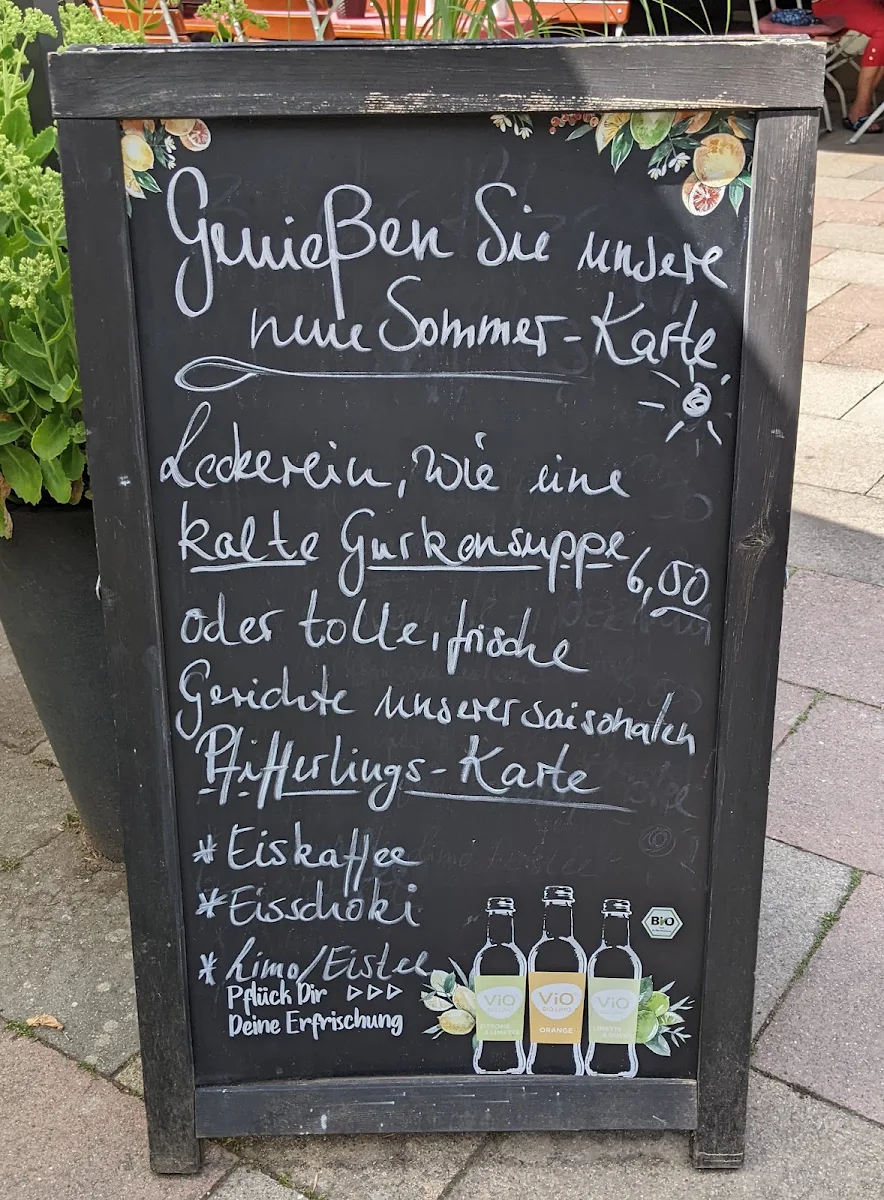 Genießen Sie unsere
neue Sommer-Karte
Leckerein, wie eine
kalte Gurkensuppe 6,50
oder tolle, frische
Gerichte unserer saisonalen
Pfifferlings-Karte
* Eiskaffee
* Eisschoki
* Limo/Eistee
Pflück Dir ▷▷▷
Deine Erfrischung
BIO
ViO
ViO
BIO LIMO
ORANGE
ViO